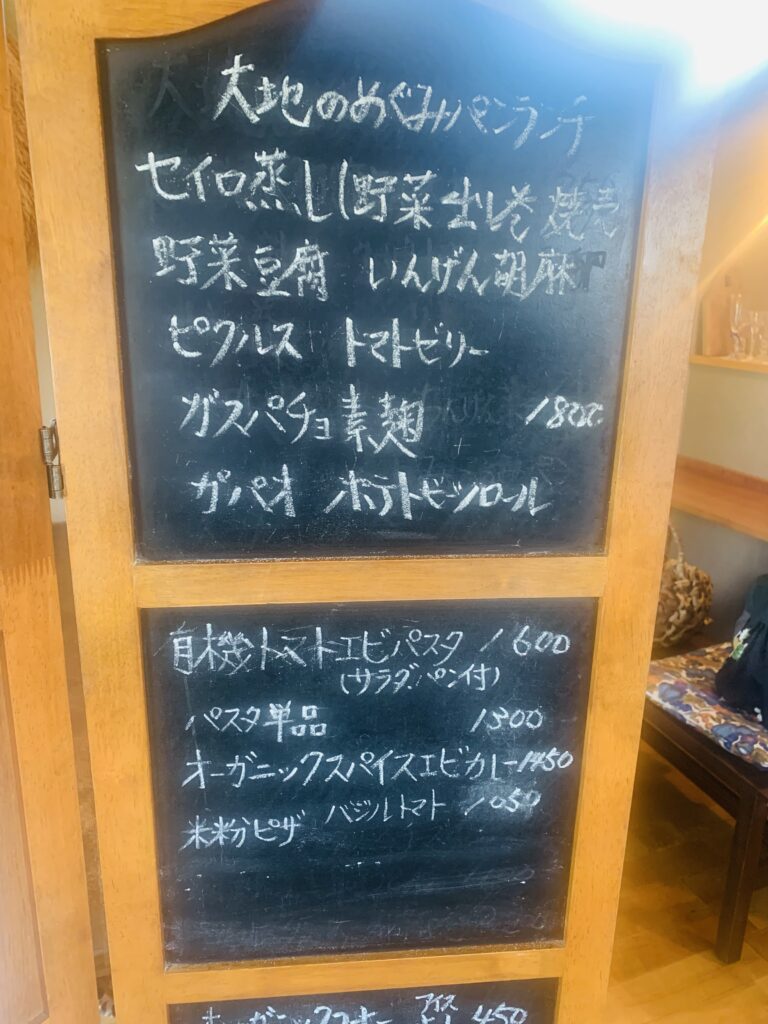 大地のめぐみパンランチ
セイロ蒸し(野菜 出し巻 焼売
野菜豆腐 いんげん胡麻
ピクルス トマトゼリー
ガスパチョ素麺 1800
ガパオ ポテトビーツロール
有機トマトエビパスタ 1600
(サラダ.パン付)
パスタ単品 1300
オーガニックスパイスエビカレー1450
米粉ピザ バジルトマト 1050
オーガニックコーヒー アイス 450